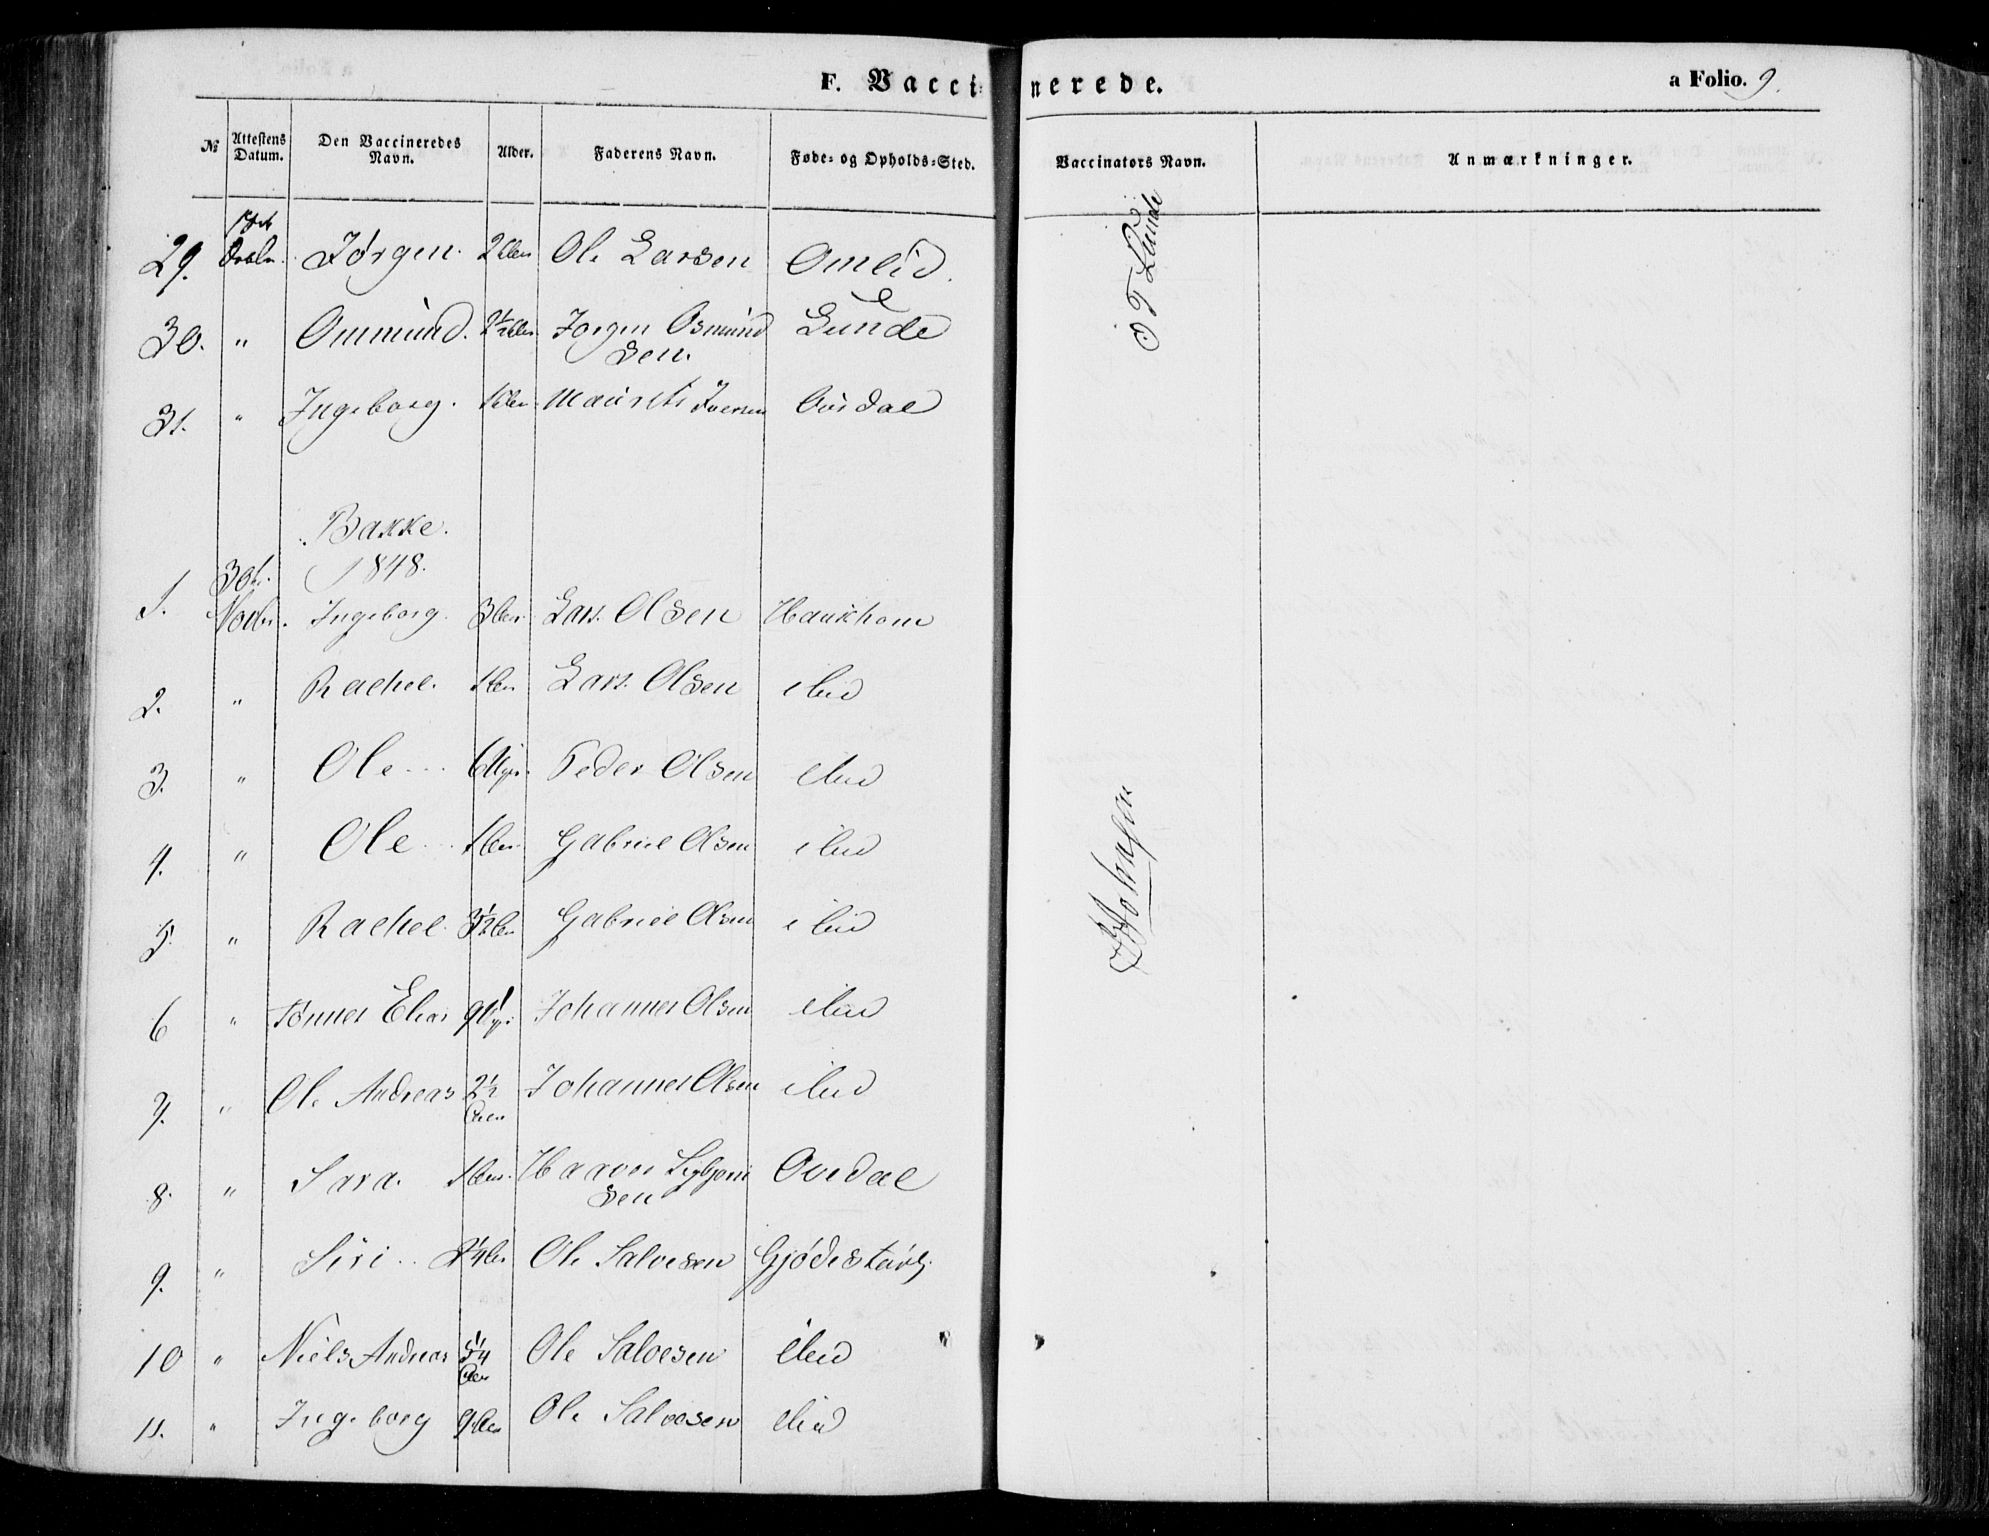 F. Vaccinerede.
a Folio. 9.
№ Attestens Datum. Den Vaccineredes Navn. Alder. Faderens Navn. Føde- og Opholds-Sted. Vaccinators Navn. Anmærkninger.
29. Jørgen. 2 Ole Larsen Omlid. T Lunde
30. " Ommund. 2½ Jørgen Osmund Lunde
sen.
31. " Ingeborg. 1 Iversen Ovedal
Bakke.
1848.
1. 30te Novbr. Ingeborg. 3 Lars Olsen Haukhom
2. " Rachel. 1 Lars Olsen ibid
3. " Ole 6 Peder Olsen ibid
4. " Ole 1 Gabriel Olsen ibid
5. " Rachel 3½ Gabriel Olsen ibid
6 " Tønnes Elias 9 Johannes Olsen ibid
7. " Ole Andreas 2½ Johannes Olsen ibid
8. " Sara. 1 Haaver Sigbjørn Ovedal
sen
9. " Siri Ole Salvesen
10 " Niels Andreas 5¼ Ole Salvesen ibid
11. " Ingeborg 9 Ole Salvesen ibid